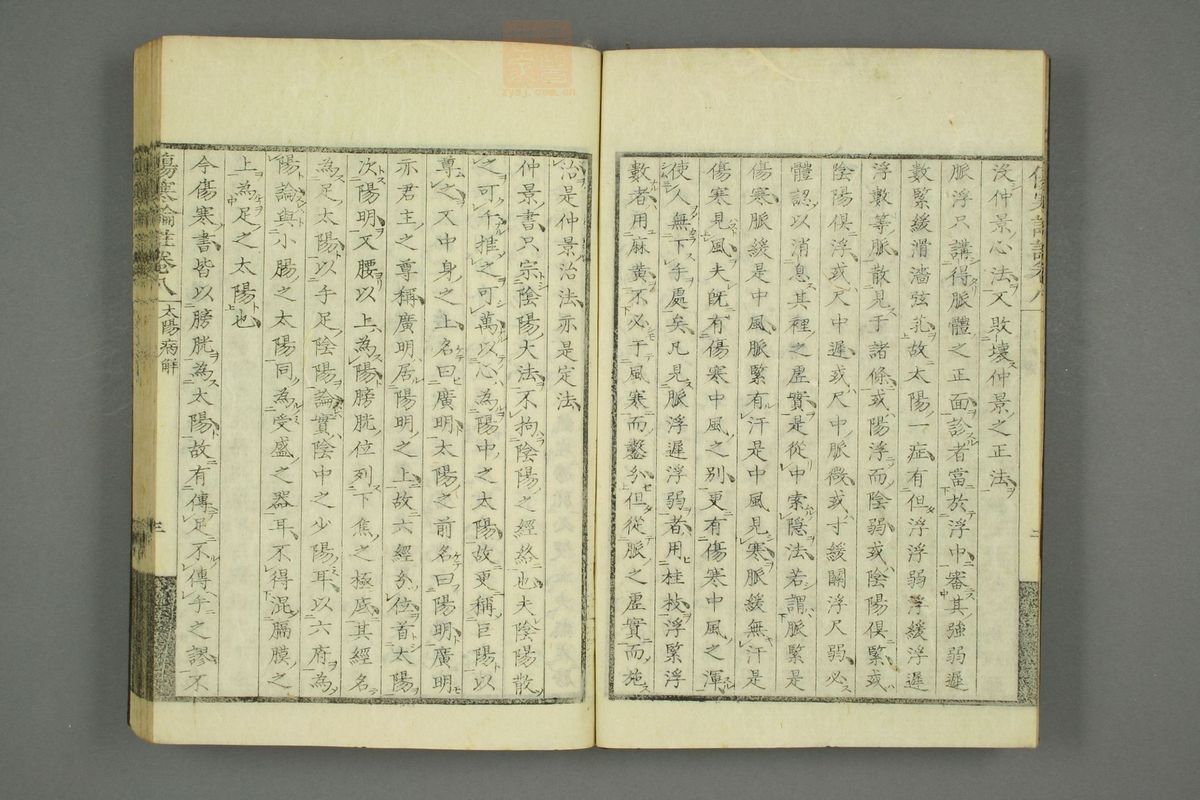 沒仲景心法又敗壞仲景之正法
脈浮只講得脈體之正面診者當於浮中審其強弱遲
數緊緩滑濇弦芤故太陽一症有但浮浮弱浮緩浮遲
浮數等脈散見于諸條或陽浮而陰弱或陰陽俱緊或
陰陽俱浮或尺中遲或尺中脈微或寸緩關浮尺弱必
體認以消息其裡之虛實是從中索隱法若謂脈緊是
傷寒脈緩是中風脈緊有汗是中風見寒脈緩無汗是
傷寒見風夫既有傷寒中風之別更有傷寒中風之渾
使人無下手處矣凡見脈浮遲浮弱者用桂枝浮緊浮
數者用麻黃不必于風寒而鑿分但從脈之虛實而施
治是仲景治法亦是定法
仲景書只宗陰陽大法不拘陰陽之經絡也夫陰陽散
之可千推之可萬以心為陽中之太陽故更稱巨陽以
尊之又中身之上名曰廣明太陽之前名曰陽明廣明
亦君主之尊稱廣明居陽明之上故六經分位首太陽
次陽明又腰以上為陽膀胱位列下焦之極底其經名
為足太陽以手足陰陽論實陰中之少陽耳以六府為
陽論與小腸之太陽同為受盛之器耳不得混膈膜之
上為足之太陽也
今傷寒書皆以膀胱為太陽故有傳足不傳手之謬不
傷寒論註卷八
太陽病解
三
二
zysj.com.cn